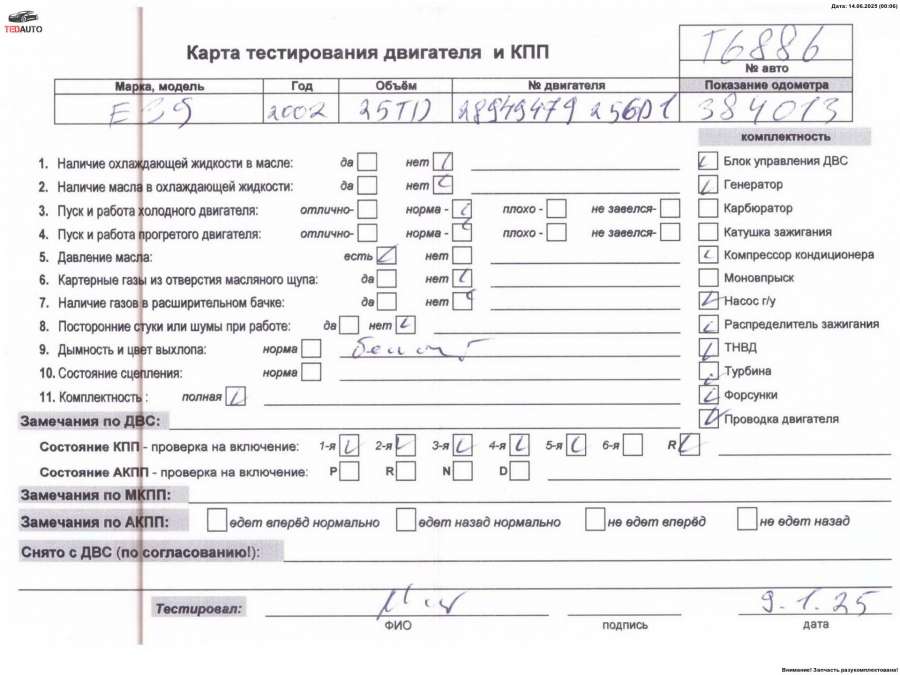 Дата: 14.06.2025 (00:06)
TEDAUTO
Карта тестирования двигателя и КПП
T6886
№ авто
Марка, модель Год Объём № двигателя Показание одометра
E39 2002 25TD 28949479 256D1 384013
комплектность
1. Наличие охлаждающей жидкости в масле: да нет
Блок управления ДВС
2. Наличие масла в охлаждающей жидкости: да нет
Генератор
3. Пуск и работа холодного двигателя: отлично- норма - плохо - не завелся-
Карбюратор
4. Пуск и работа прогретого двигателя: отлично- норма - плохо - не завелся-
Катушка зажигания
5. Давление масла: есть нет
Компрессор кондиционера
6. Картерные газы из отверстия масляного щупа: да нет
Моновпрыск
7. Наличие газов в расширительном бачке: да нет
Насос г/у
8. Посторонние стуки или шумы при работе: да нет
Распределитель зажигания
9. Дымность и цвет выхлопа: норма
ТНВД
10. Состояние сцепления: норма
Турбина
11. Комплектность : полная
Форсунки
Замечания по ДВС:
Проводка двигателя
Состояние КПП - проверка на включение: 1-я 2-я 3-я 4-я 5-я 6-я R
Состояние АКПП - проверка на включение: P R N D
Замечания по МКПП:
Замечания по АКПП: едет вперёд нормально едет назад нормально не едет вперёд не едет назад
Снято с ДВС (по согласованию!):
Тестировал: 9.1.25
ФИО подпись дата
Внимание! Запчасть разукомплектована!